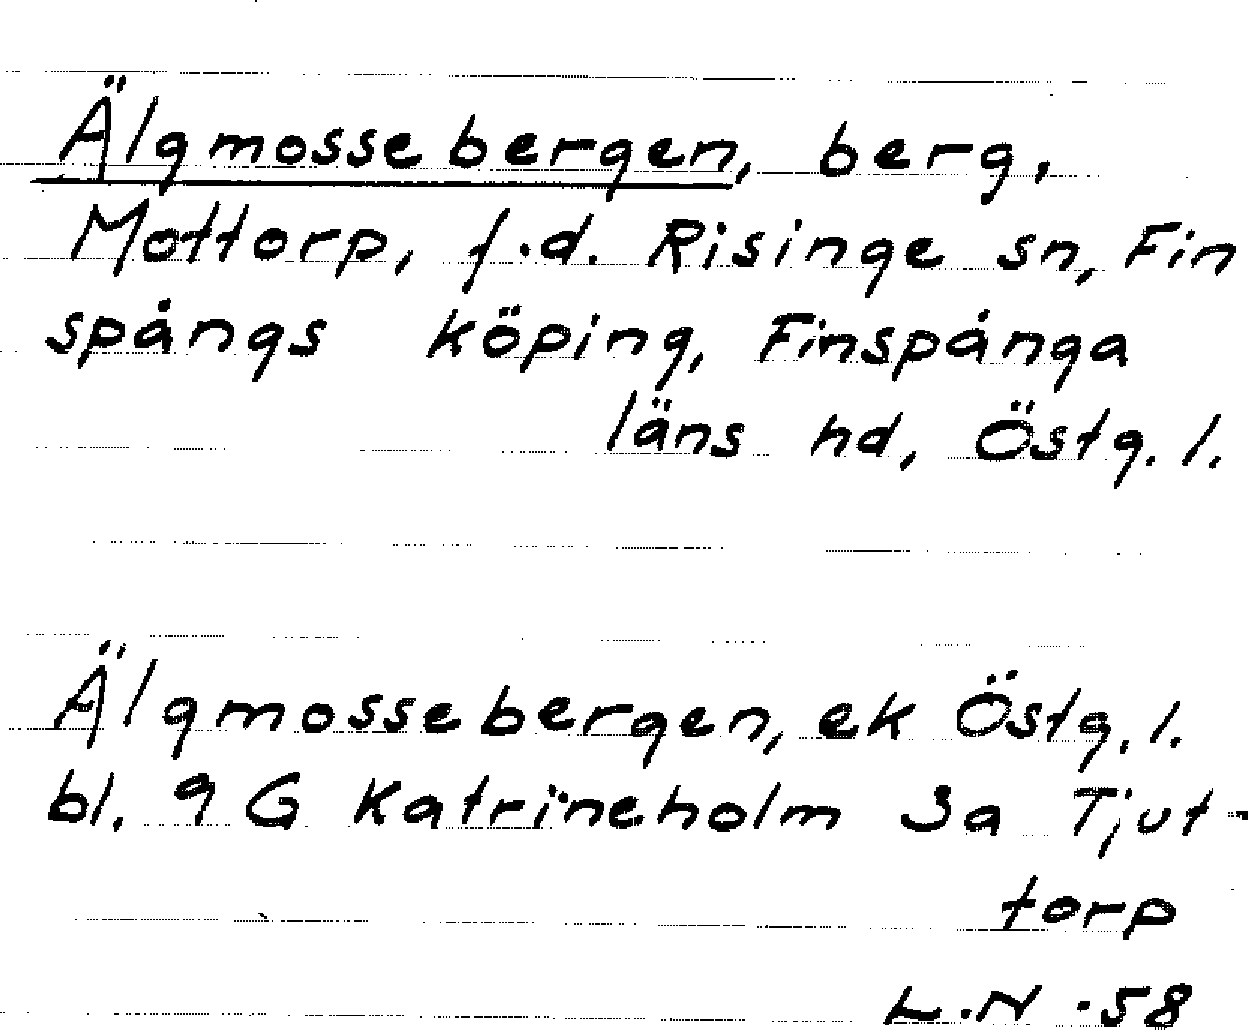 Älgmossebergen, berg,
Mottorp, f.d. Risinge sn, Fin
spångs köping, Finspånga
läns hd, Östg. l.
Älgmossebergen, ek Östg. l.
bl. 9 G Katrineholm 3a Tjut-
torp
L.N .58